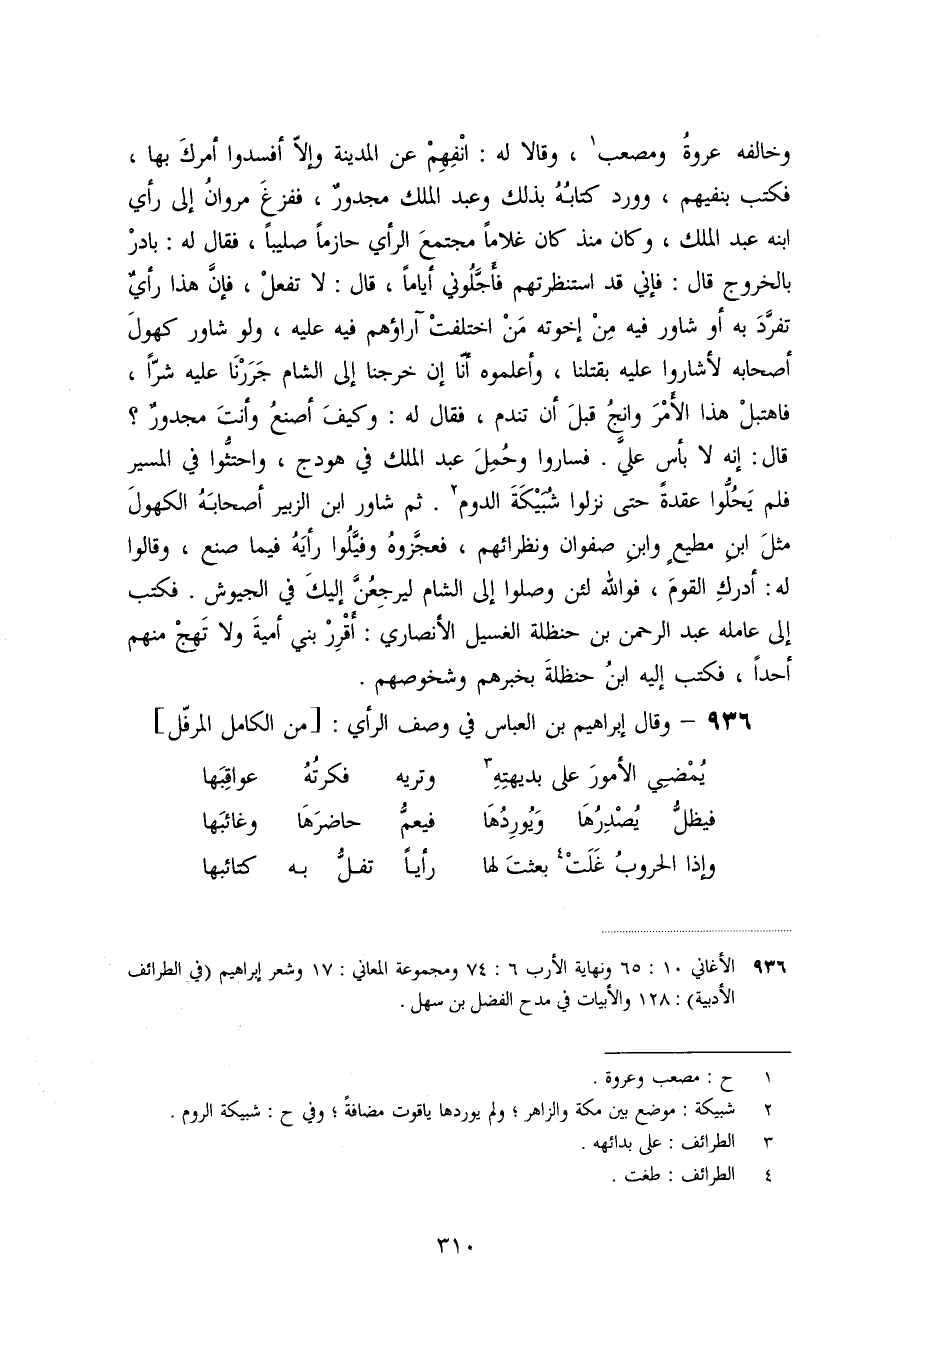 وخالفه عروةُ ومصعب١ ، وقالا له : انْفِهِمْ عن المدينة وإلاّ أفسدوا أمركَ بها ،
فكتب بنفيهم ، وورد كتابُهُ بذلك وعبد الملك مجدورٌ ، ففزعَ مروانُ إلى رأي
ابنه عبد الملك ، وكان منذ كان غلاماً مجتمعَ الرأي حازماً صليباً ، فقال له : بادرْ
بالخروج قال : فإني قد استنظرتهم فأَجَّلُوني أياماً ، قال : لا تفعلْ ، فإنَّ هذا رأيٌ
تفرَّدَ به أو شاور فيه مِنْ إخوته مَنْ اختلفتْ آراؤهم فيه عليه ، ولو شاور كهولَ
أصحابه لأشاروا عليه بقتلنا ، وأعلموه أنّا إن خرجنا إلى الشام جَرَرْنَا عليه شرّاً ،
فاهتبلْ هذا الأَمْرَ وانجُ قبلَ أن تندم ، فقال له : وكيفَ أصنعُ وأنتَ مجدورٌ ؟
قال : إنه لا بأس عليَّ . فساروا وحُمِلَ عبد الملك في هودج ، واحتثُّوا في المسير
فلم يَحُلُّوا عقدةً حتى نزلوا شُبَيْكَةَ الدوم٢ . ثم شاور ابن الزبير أصحابَهُ الكهولَ
مثلَ ابنِ مطيعٍ وابنِ صفوان ونظرائهم ، فعجَّزوهُ وفيَّلُوا رأيَهُ فيما صنع ، وقالوا
له : أدركِ القومَ ، فوالله لئن وصلوا إلى الشام ليرجعُنَّ إليكَ في الجيوش . فكتب
إلى عامله عبد الرحمن بن حنظلة الغسيل الأنصاري : أَقْرِرْ بني أميةَ ولا تَهِجْ منهم
أحداً ، فكتب إليه ابنُ حنظلةَ بخبرهم وشخوصهم .
٩٣٦ – وقال إبراهيم بن العباس في وصف الرأي : [من الكامل المرفّل]
يُمْضِي الأمورَ على بديهتِهِ٣ وتريه فكرتُهُ عواقِبَها
فيظلُّ يُصْدِرُهَا وَيُورِدُهَا فيعمُّ حاضرَهَا وغائبَها
وإذا الحروبُ غَلَتْ٤ بعثتَ لها رأياً تفلُّ به كتائبها
٩٣٦ الأغاني ١٠ : ٦٥ ونهاية الأرب ٦ : ٧٤ ومجموعة المعاني : ١٧ وشعر إبراهيم (في الطرائف
الأدبية) : ١٢٨ والأبيات في مدح الفضل بن سهل .
١ ح : مصعب وعروة .
٢ شبيكة : موضع بين مكة والزاهر ؛ ولم يوردها ياقوت مضافةً ؛ وفي ح : شبيكة الروم .
٣ الطرائف : على بدائهه .
٤ الطرائف : طغت .
٣١٠